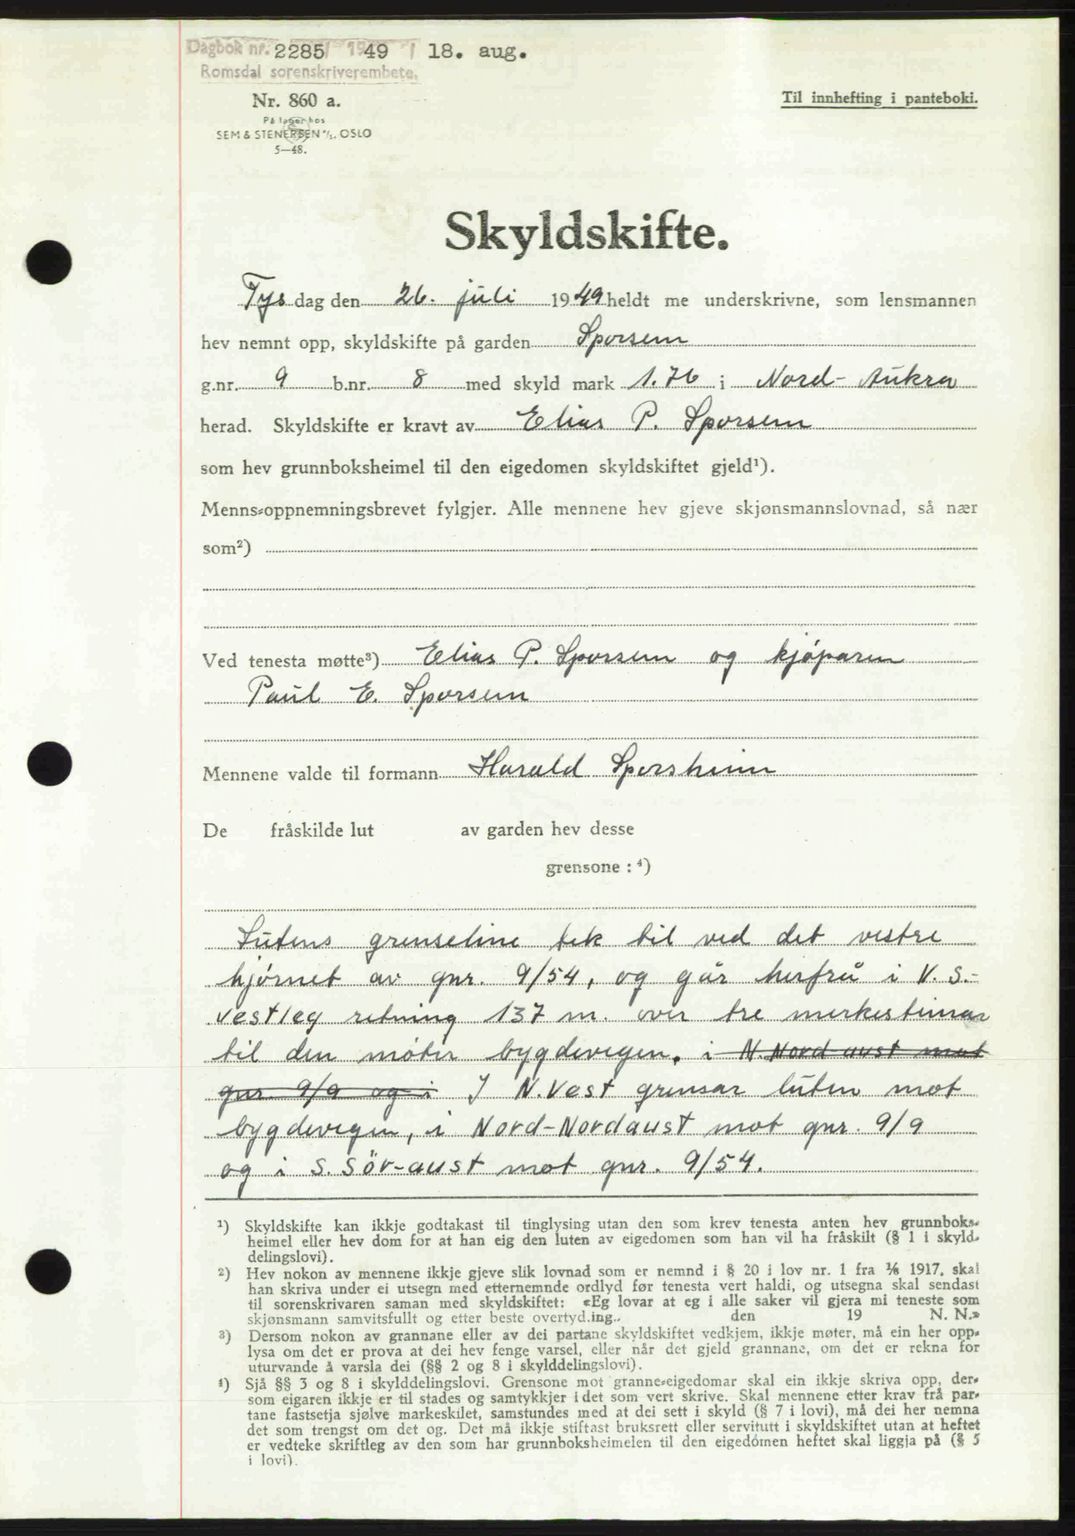 Dagbok nr. 2285 / 19 49 / 18. aug.
Romsdal sorenskriverembete.
Nr. 860 a.
På lager hos
SEM & STENERSEN A/S. OSLO
5—48.
Til innhefting i panteboki.
Skyldskifte.
Tys dag den 26. juli 1949 heldt me underskrivne, som lensmannen
hev nemnt opp, skyldskifte på garden Sporsem
g.nr. 9 b.nr. 8 med skyld mark 1.76 i Nord-Aukra
herad. Skyldskifte er kravt av Elias P. Sporsem
som hev grunnboksheimel til den eigedomen skyldskiftet gjeld¹).
Menns-oppnemningsbrevet fylgjer. Alle mennene hev gjeve skjønsmannslovnad, så nær
som²)
Ved tenesta møtte³) Elias P. Sporsem og kjøparen
Paul E. Sporsem
Mennene valde til formann Harald Sporsheim
De fråskilde lut av garden hev desse
grensone : ⁴)
Lutens grenseline tek til ved det vestre
hjørnet av gnr. 9/54, og går herfrå i V. S.-
vestleg retning 137 m. over tre merkesteinar
til den møter bygdevegen. i N. Nord aust mot
gnr 9/9 og i I N.Vest grensar luten mot
bygdevegen, i Nord-Nordaust mot gnr. 9/9
og i S. Sör-aust mot gnr. 9/54.
¹) Skyldskifte kan ikkje godtakast til tinglysing utan den som krev tenesta anten hev grunnboks-
heimel eller hev dom for at han eig den luten av eigedomen som han vil ha fråskilt (§ 1 i skyld-
delingslovi).
²) Hev nokon av mennene ikkje gjeve slik lovnad som er nemnd i § 20 i lov nr. 1 fra ⅙ 1917, skal
han skriva under ei utsegn med etternemnde ordlyd før tenesta vert haldi, og utsegna skal sendast
til sorenskrivaren saman med skyldskiftet: «Eg lovar at eg i alle saker vil gjera mi teneste som
skjønsmann samvitsfullt og etter beste overtyd.ing.. den 19 N. N.»
³) Dersom nokon av grannane eller av dei partane skyldskiftet vedkjem, ikkje møter, må ein her opp-
lysa om det er prova at dei hev fenge varsel, eller når det gjeld grannane, om det er rekna for
uturvande å varsla dei (§§ 2 og 8 i skylddelingslovi).
⁴) Sjå §§ 3 og 8 i skylddelingslovi. Grensone mot granne-eigedomar skal ein ikkje skriva opp, der-
som eigaren ikkje er til stades og samtykkjer i det som vert skrive. Skal mennene etter krav frå par-
tane fastsetja sjølve markeskilet, samstundes med at dei sett i skyld (§ 7 i lovi), må dei her nemna
det som trengst om det og. Det må ikkje stiftast bruksrett eller servitutt i skyldskiftet utan at heftet
er vedteke skriftleg av den som har grunnboksheimelen til den eigedomen heftet skal liggja på (§ 5
i lovi).